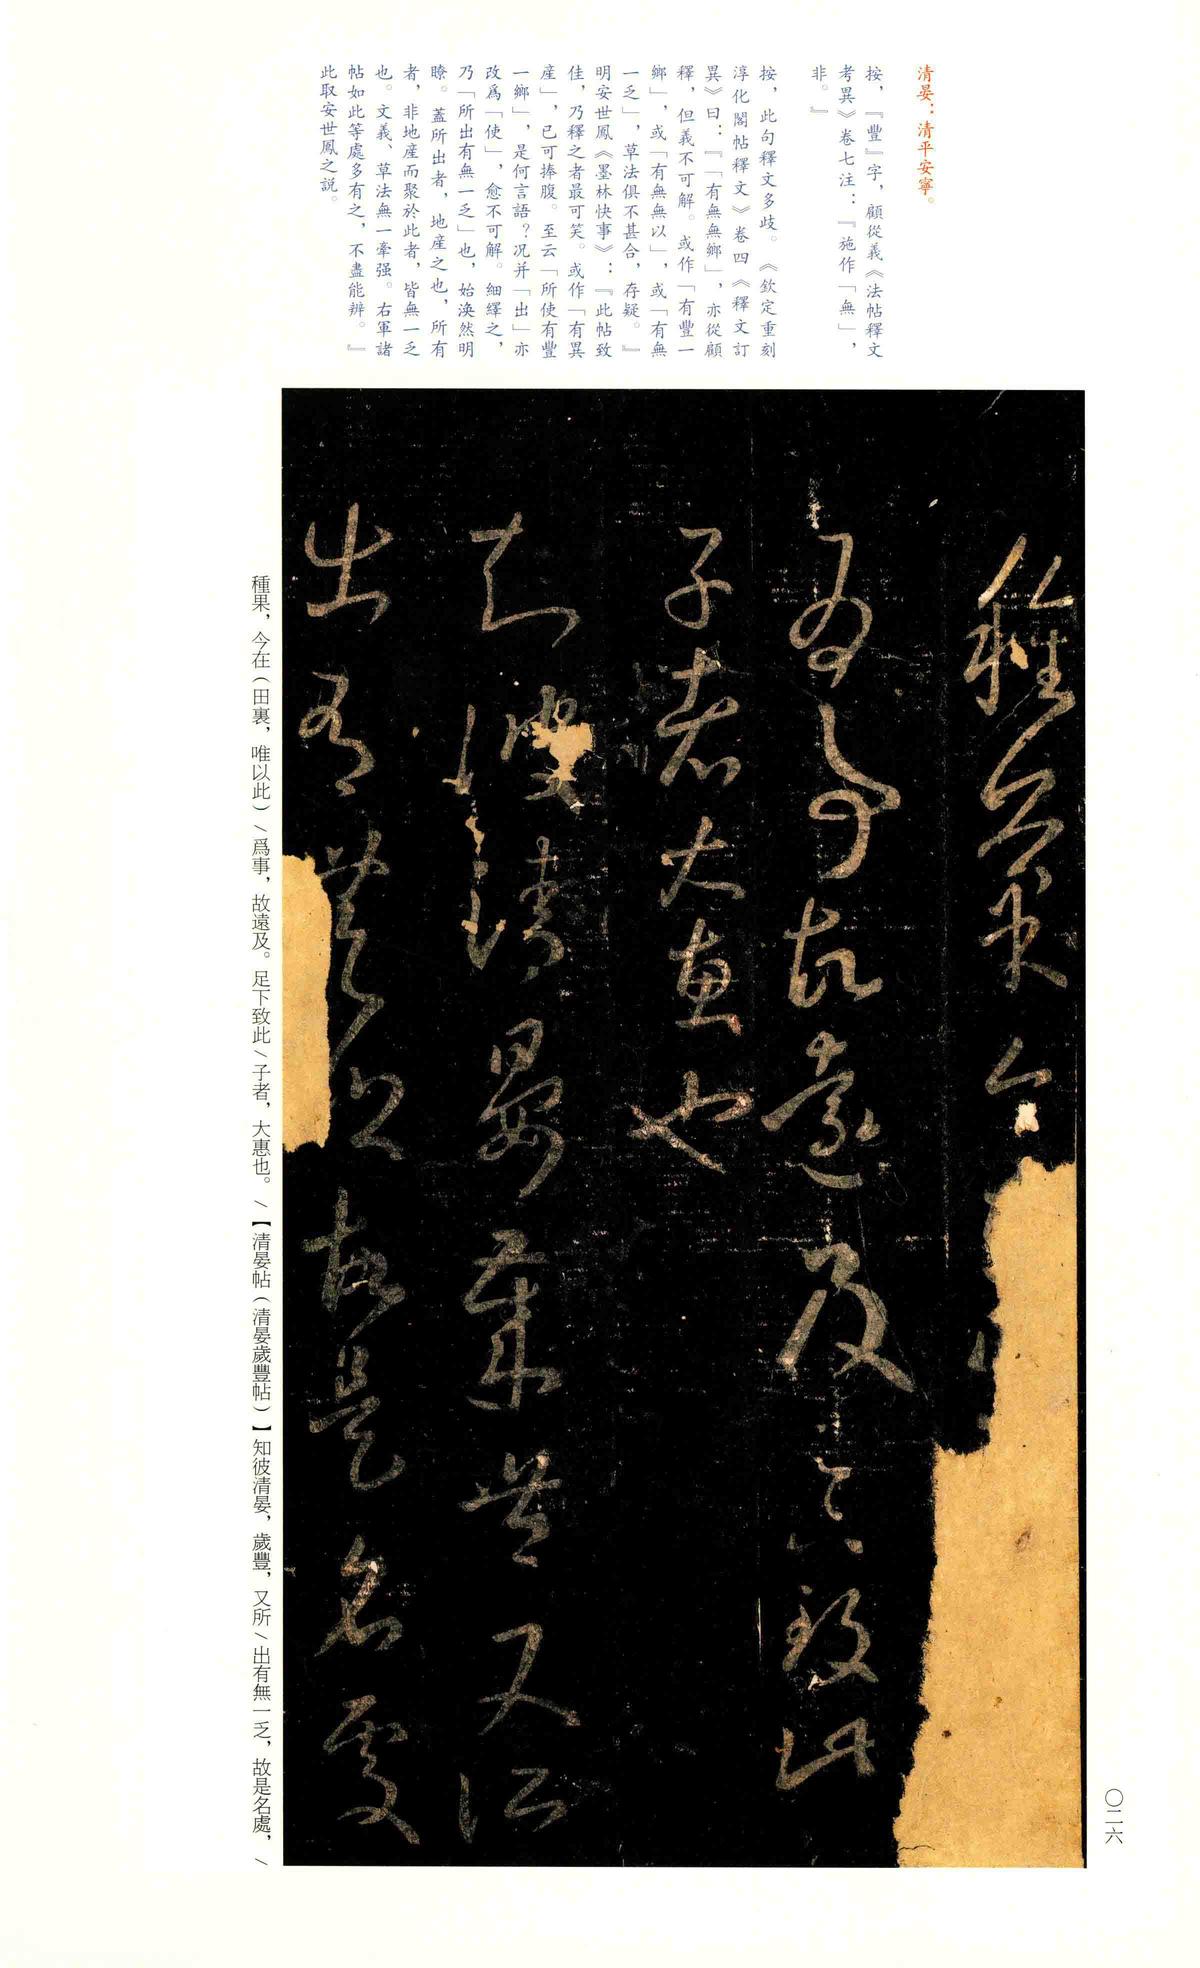 清晏：清平安寧。
按，『豐』字，顧從義《法帖釋文
考異》卷七注：『施作「無」，
非。』
按，此句釋文多歧。《欽定重刻
淳化閣帖釋文》卷四《釋文訂
異》曰：『「有無無鄉」，亦從顧
釋，但義不可解。或作「有豐一
鄉」，或「有無無以」，或「有無
一乏」，草法俱不甚合，存疑。』
明安世鳳《墨林快事》：『此帖致
佳，乃釋之者最可笑。或作「有異
產」，已可捧腹。至云「所使有豐
一鄉」，是何言語？况并「出」亦
改爲「使」，愈不可解。細繹之，
乃「所出有無一乏」也，始渙然明
瞭。蓋所出者，地産之也，所有
者，非地産而聚於此者，皆無一乏
也。文義、草法無一牽强。右軍諸
帖如此等處多有之，不盡能辨。』
此取安世鳳之説。
種果今
爲事故遠及足下致此
子者大惠也
知彼清晏歲豐又所
出有無一乏故是名處
種果，今在（田裏，唯以此）\爲事，故遠及。足下致此\子者，大惠也。\【清晏帖（清晏歲豐帖）】知彼清晏，歲豐，又所\出有無一乏，故是名處，\
〇二六